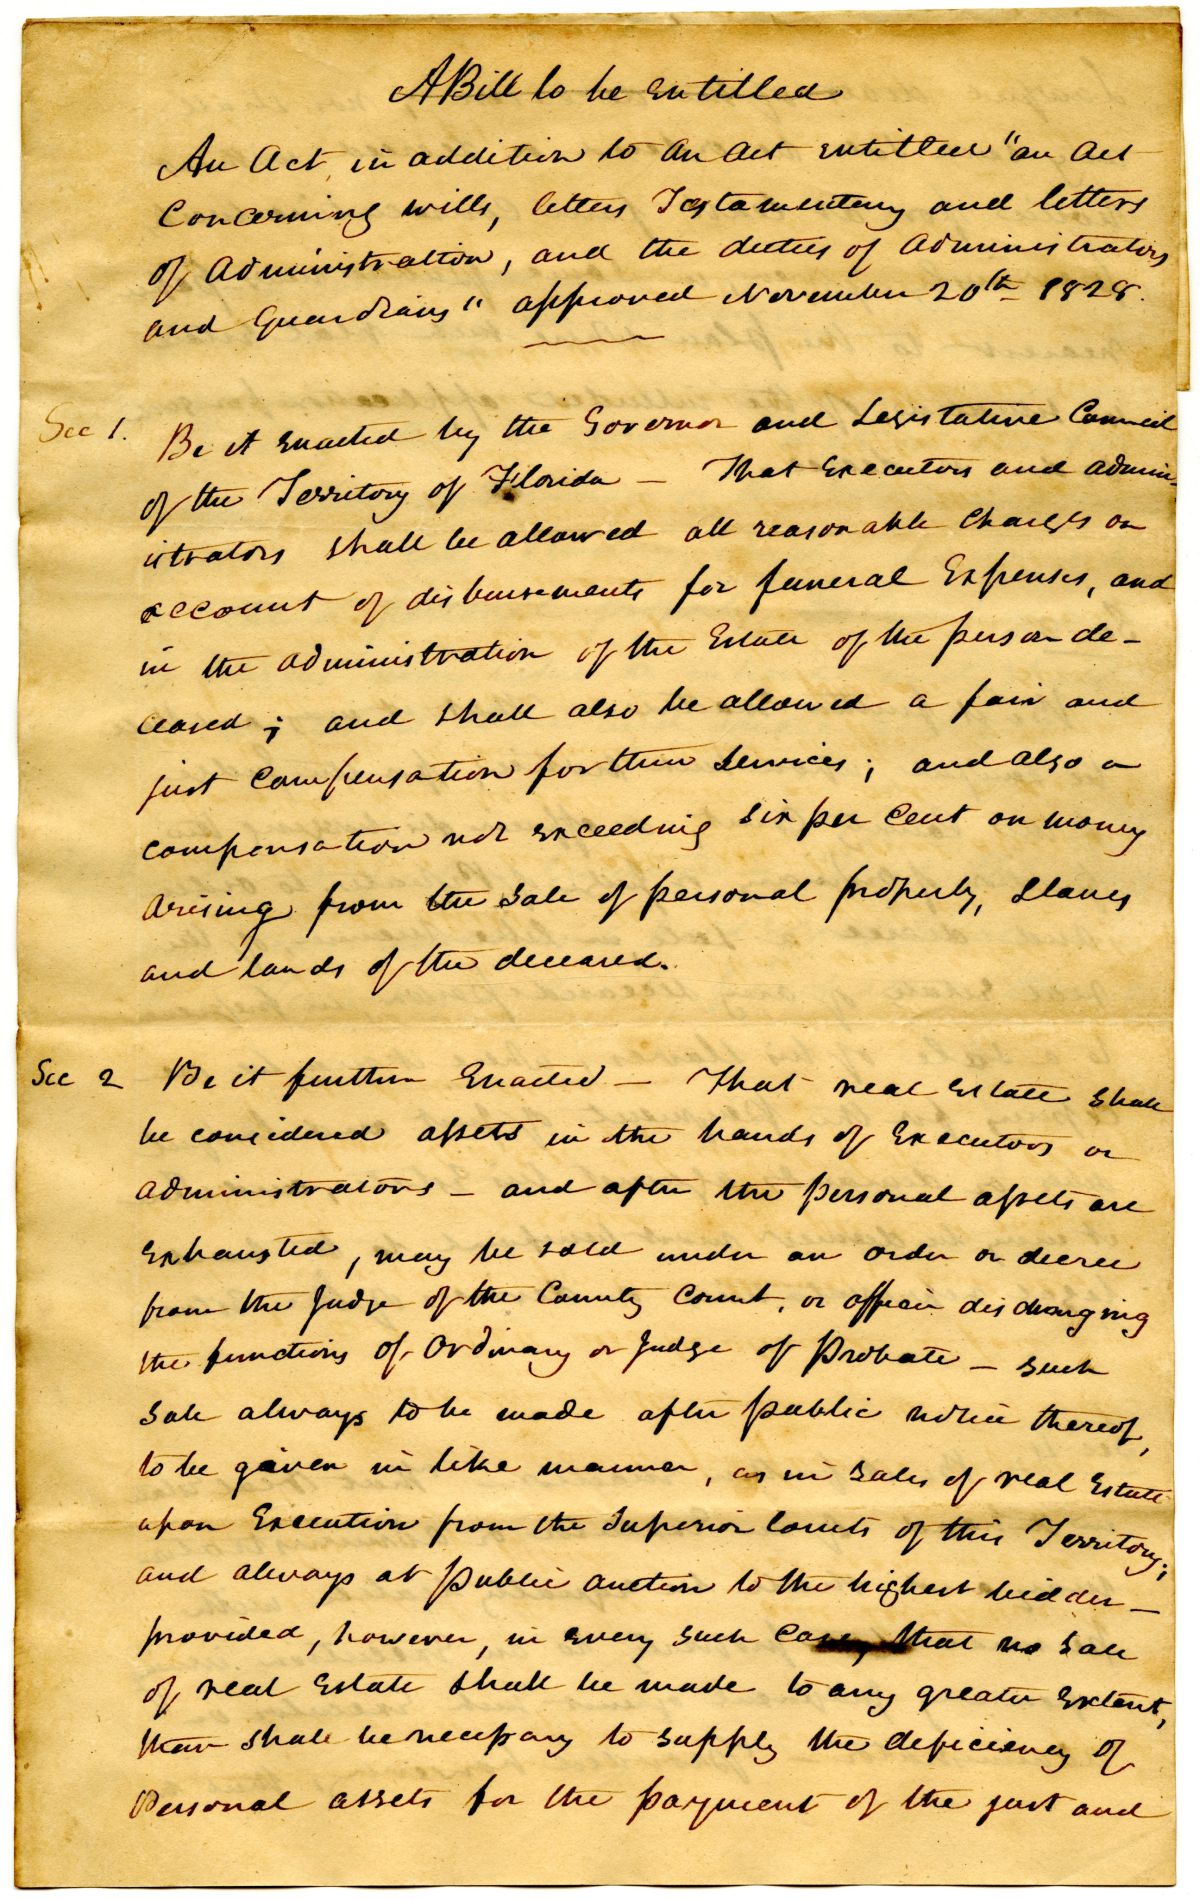 A Bill to be entitled
An Act, in addition to an act entitled "an act
Concerning wills, letters Testamentary and letters
of Administration, and the duties of Administrators
and Guardians" approved November 20th 1828.
Sec 1. Be it enacted by the Governor and Legislative Council
of the Territory of Florida — That Executors and admin-
istrators shall be allowed all reasonable charges on
account of disbursements for funeral Expenses, and
in the administration of the Estate of the person de-
ceased; and shall also be allowed a fair and
just compensation for their services; and also a
compensation not exceeding six per cent on money
arising from the sale of personal property, slaves
and lands of the deceased.
Sec 2 Be it further Enacted — That real Estate shall
be considered assets in the hands of Executors or
administrators — and after the personal assets are
exhausted, may be sold under an order or decree
from the Judge of the County Court, or officer discharging
the functions of Ordinary or Judge of Probate — such
sale always to be made after public notice thereof,
to be given in like manner, as in sales of real Estate
upon Execution from the Superior Courts of this Territory;
and always at public auction to the highest bidder —
provided, however, in every such case, that no sale
of real Estate shall be made to any greater extent,
than shall be necessary to supply the deficiency of
Personal assets for the payment of the just and